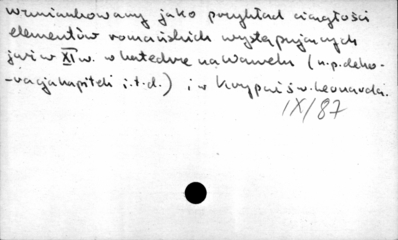 wzmiankowany jako przykład ciągłości
elementów romańskich występujących
już w XI w. w katedrze na Wawelu (n.p. deko-
-racja kapiteli i.t.d.) i w krypcie św. Leonarda.
IX/87